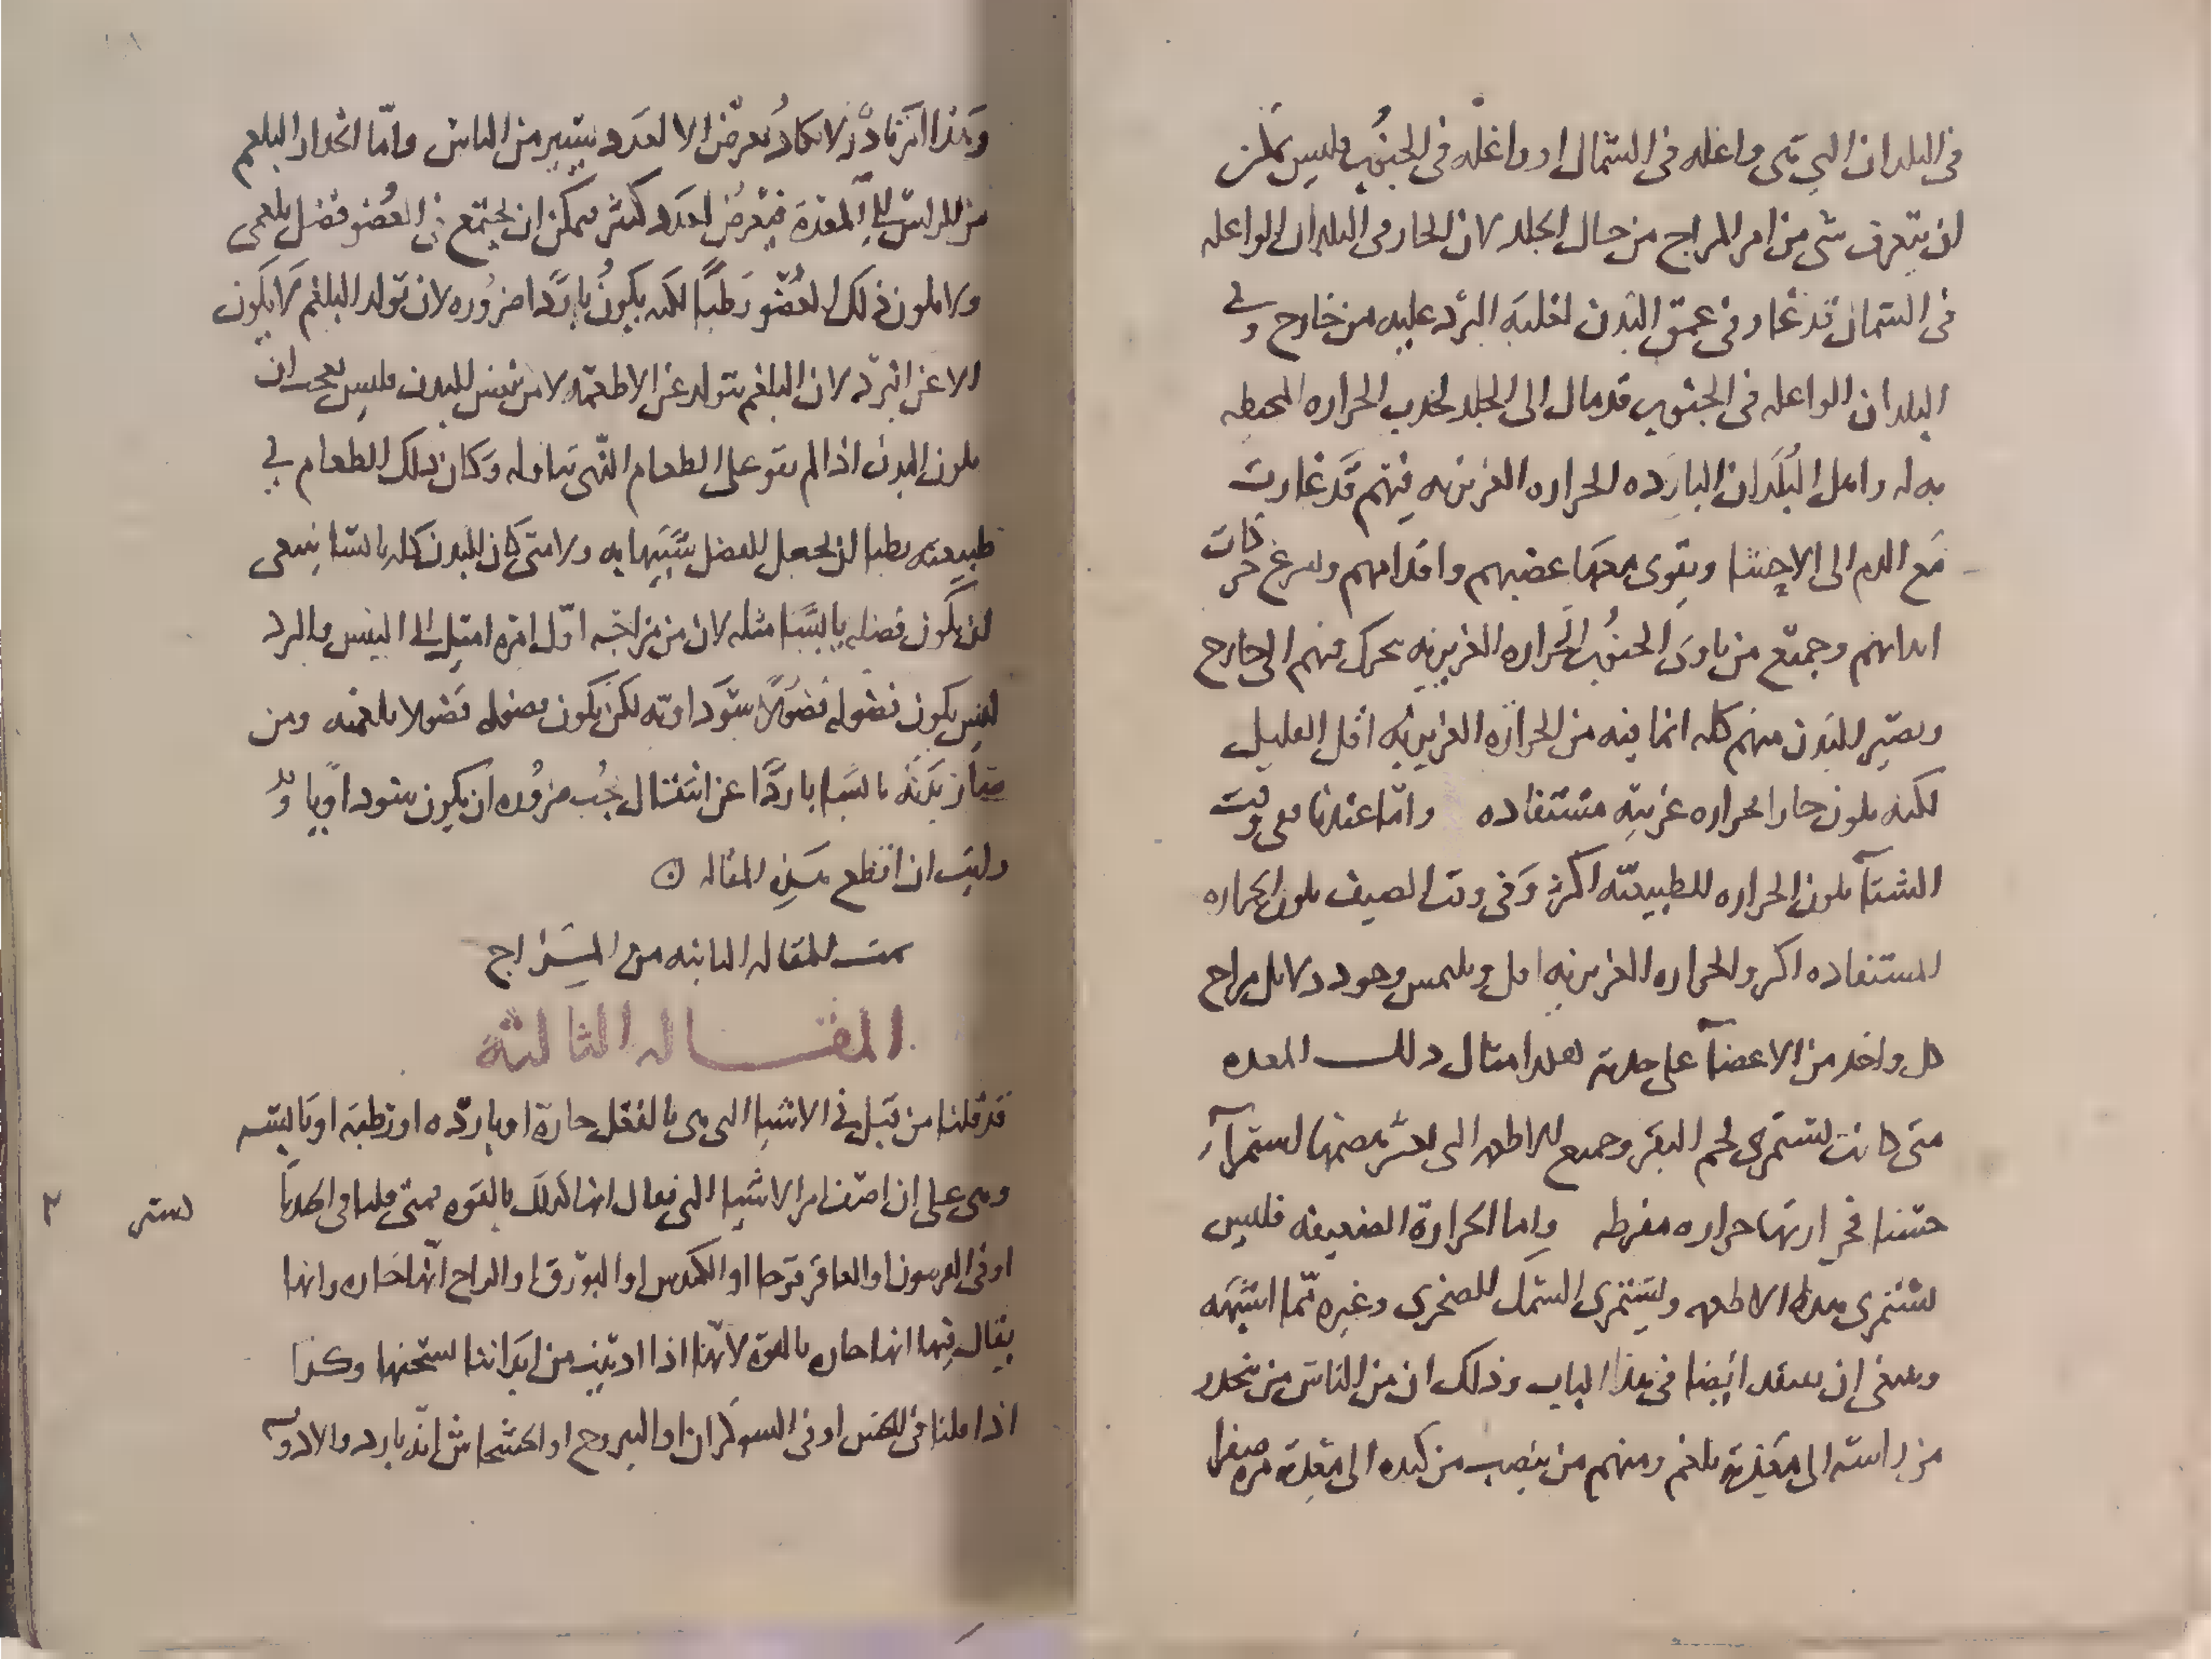 في البلدان التي هي واغله في الشمال او واغله في الجنوب فليس يمكن
ان يتعرف شي من امر المزاج من حال الجلد لان الحار في البلدان الواغله
في الشمال قد غار في عمق البدن لغلبة البرد عليه من خارج وفي
البلدان الواغله في الجنوب قد مال الى الجلد لجذب الحراره المحيطه
به له واهل البلدان البارده الحراره الغريزيه فيهم قد غارت
مع الدم الى الاحشا ويقوى معها غضبهم واقدامهم وتسرع حركات
ابدانهم وجميع من ناوى الجنوب الحراره الغريزيه تتحرك فيهم الى خارج
ويصير البدن منهم كله انما فيه من الحراره الغريزيه اقل القليل
لكنه يكون حارا بحراره غريبه مستفاده واما عندنا ففي وقت
الشتآ يكون الحراره الطبيعيه اكثر وفي وقت الصيف يكون الحراره
المستفاده اكثر والحراره الغريزيه اقل ويلتمس وجود دلايل مزاج
كل واحد من الاعضآ على حدته لهذا مثال ذلك المعده
متى كانت تستمري لحم البقر وجميع الاطعمه التي يعسر هضمها استمرآ
حسنا فحرارتها حراره مفرطه واما الحرارة الضعيفه فليس
تستمري هذه الاطعمه وتستمري السمك الصخري وغيره مما اشبهه
وينبغي ان يتفقد ايضا في هذا الباب وذلك ان من الناس من ينحدر
من راسه الى معدته بلغم ومنهم من ينصب من كبده الى معدته مره صفرا
وهذا امر نادر لا يكاد يعرض الا لعدد يسير من الناس واما انحدار البلغم
من الراس الى المعدة فيعرض لعدد كثير ويمكن ان يجتمع في العضو فضل بلغمي
ولا يكون ذلك العضو رطبا لكنه يكون باردا ضروره لان تولد البلغم لا يكون
الا عن البرد لان البلغم يتولد عن الاطعمه لا من نفس البدن فليس بعجب ان
يكون البدن اذا لم يقو على الطعام الذي يتناوله وكان ذلك الطعام في
طبيعته رطبا ان يجعل الفضل شبيها به ولا متى كان البدن كله يابسا ينبغي
ان يكون فضله يابسا مثله لان من مزاجه اول امره اميل الى اليبس والبرد
ليس يكون فضوله فضولا سوداويه لكن يكون فضوله فضولا بلغميه ومن
صار بدنه يابسا باردا عن انتقال يجب ضروره ان يكون سوداويا وقد
رايت ان اقطع هذه المقاله
تمت المقاله الثانيه من المزاج
المقاله الثالثة
قد قلنا من قبل في الاشيا التي هي بالفعل حارة او بارده او رطبه او يابسه
وهي علي ان اصف امر الاشيا التي يقال انها كذلك بالقوه فمتى قلنا في احدها
او في الفربيون او العاقرقرحا او الكندس او البورق او الزاج انها حاره وانها
يقال فيها انها حاره بالقوة لانها اذا ادنيت من ابداننا اسخنها وكذا
اذا قلنا في الخس او في السوكران او اليبروح او الخشخاش انه بارد والادويه
٣